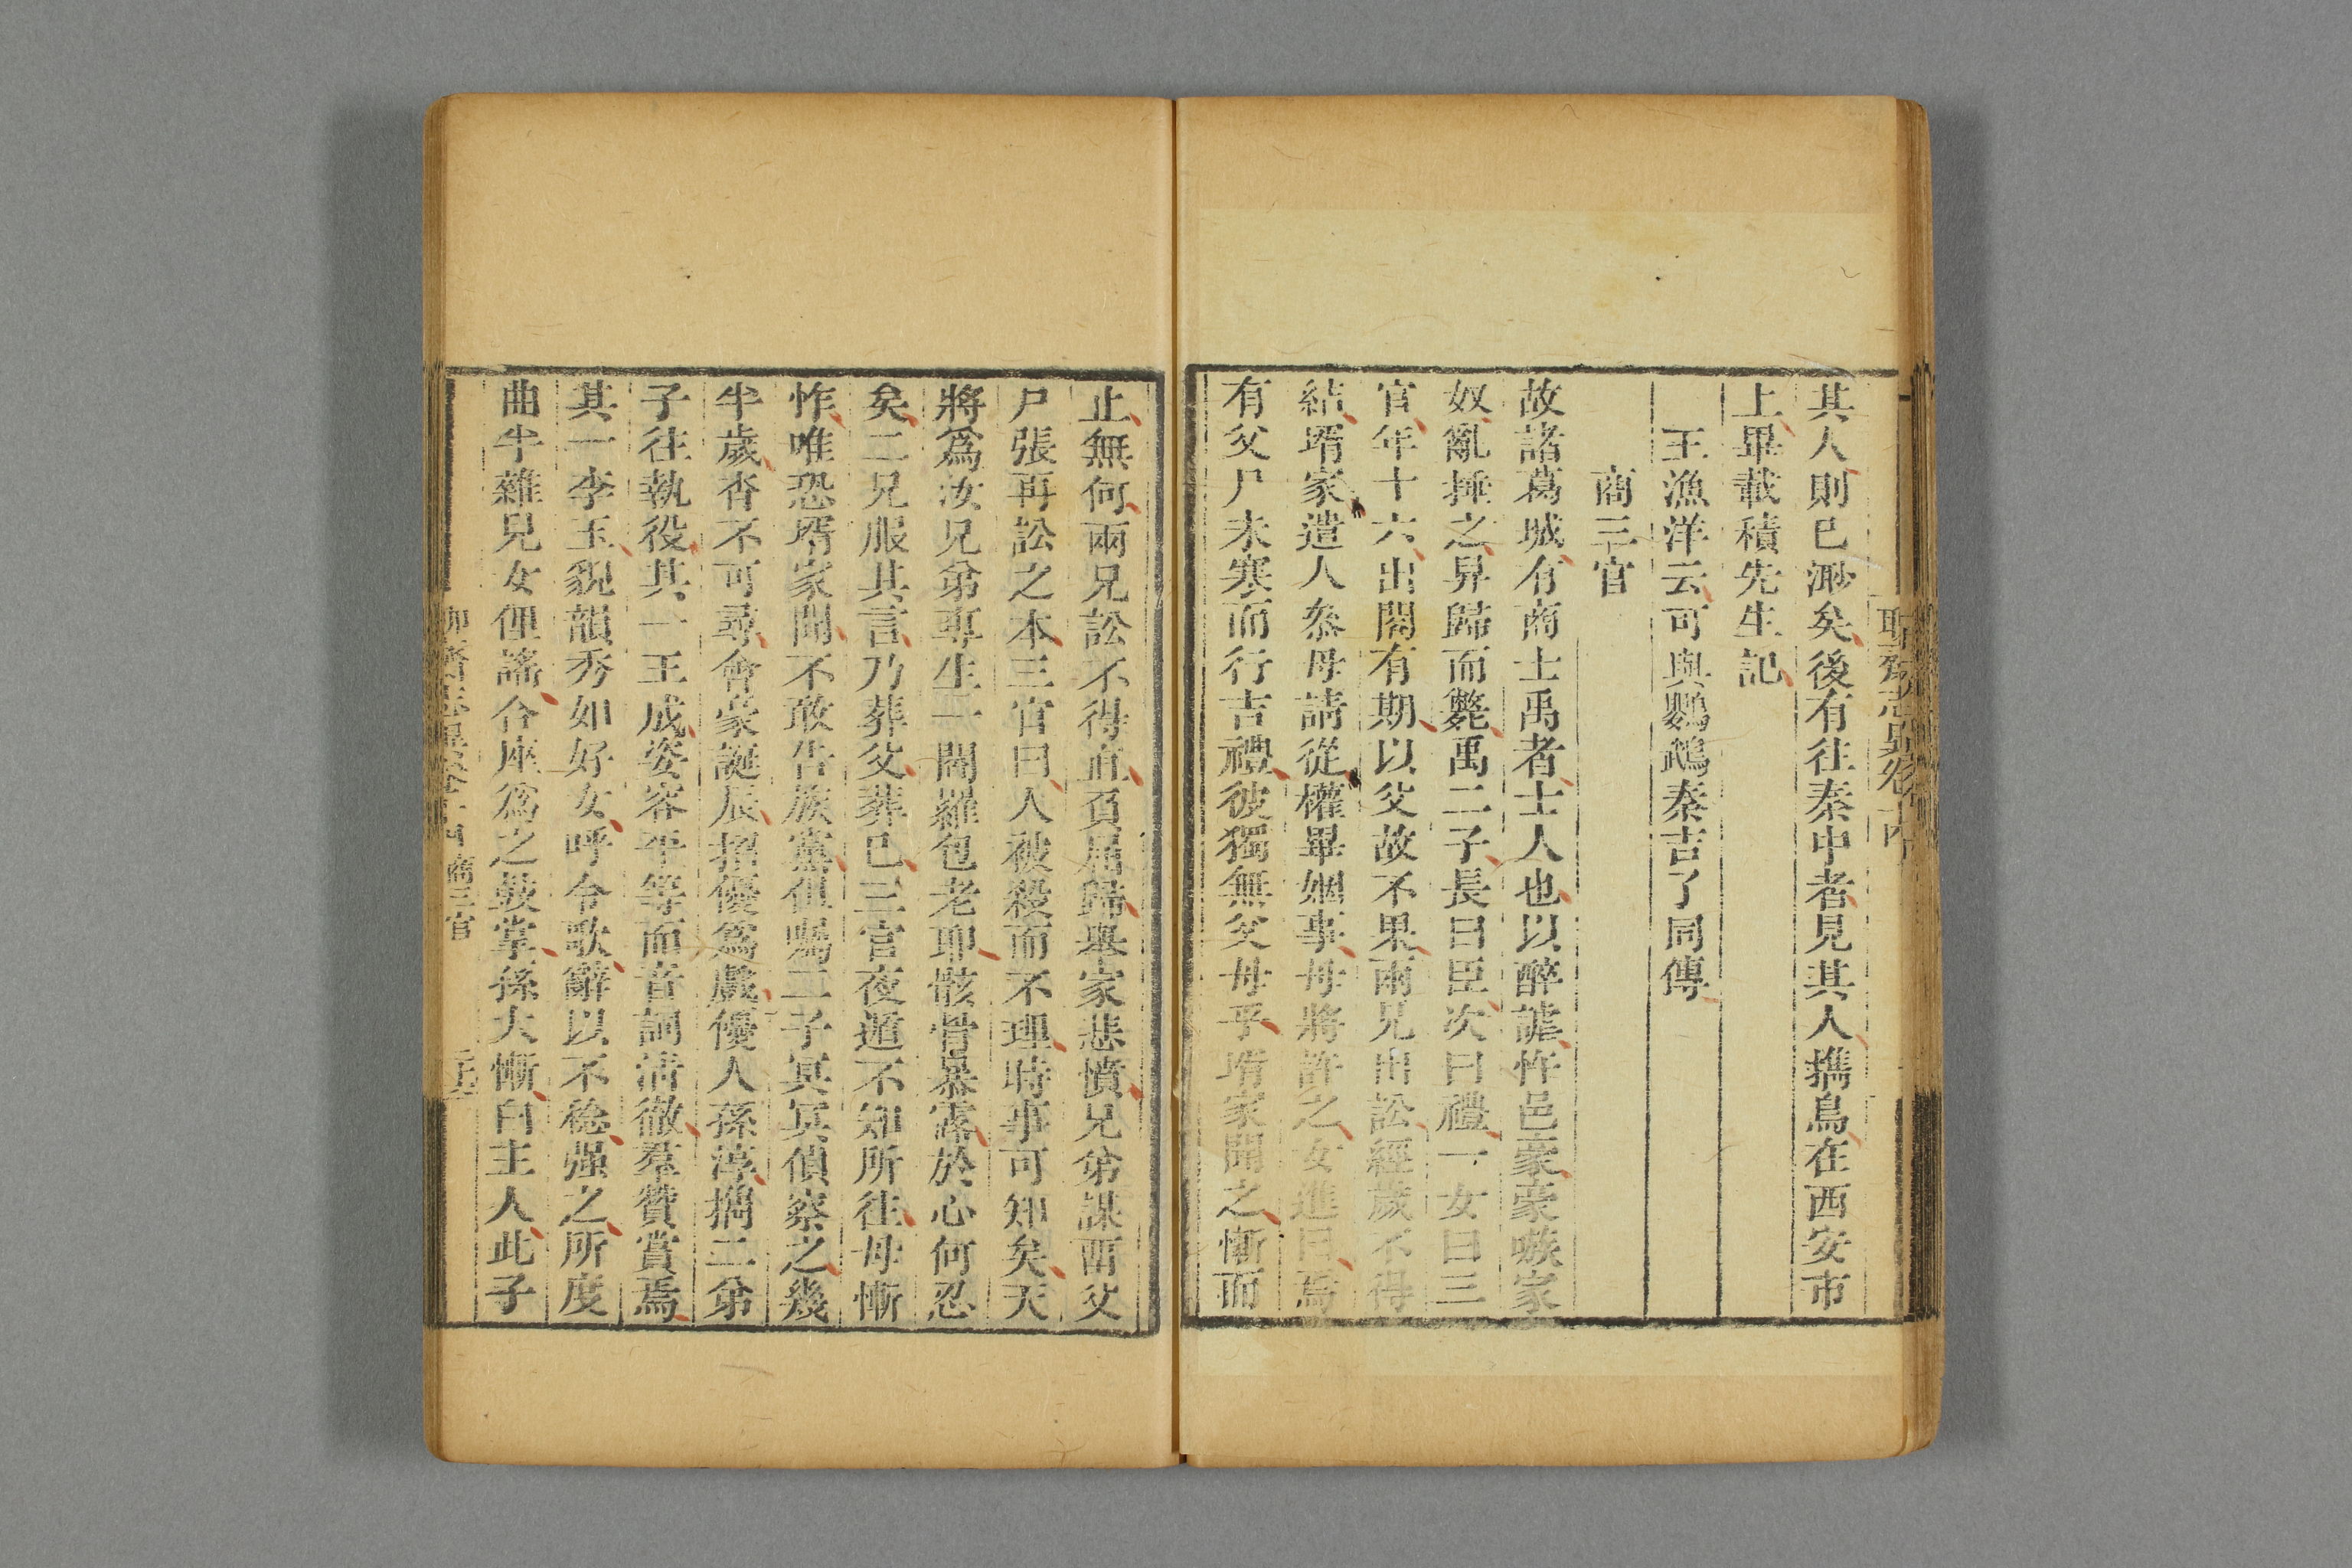 聊齋志異卷十四
其人則已渺矣後有往秦中者見其人擕鳥在西安市
上畢載積先生記
王漁洋云可與鸚鵡秦吉了同傳
商三官
故諸葛城有商士禹者士人也以醉謔忤邑豪豪嗾家
奴亂捶之舁歸而斃禹二子長曰臣次曰禮一女曰三
官年十六出閣有期以父故不果兩兄出訟經歲不得
結壻家遣人叅母請從權畢姻事母將許之女進曰焉
有父尸未寒而行吉禮彼獨無父母乎壻家聞之慚而
止無何兩兄訟不得直負屈歸舉家悲憤兄弟謀畱父
尸張再訟之本三官曰人被殺而不理時事可知矣天
將爲汝兄弟專生一閻羅包老耶骸骨暴露於心何忍
矣二兄服其言乃葬父葬已三官夜遁不知所往母慚
怍唯恐壻家聞不敢告族黨但囑二子冥冥偵察之幾
半歲杳不可尋會豪誕辰招優爲戲優人孫淳擕二弟
子往執役其一王成姿容平等而音詞清徹羣贊賞焉
其一李玉貌韻秀如好女呼令歌辭以不稔强之所度
曲半雜兒女俚謠合座爲之鼓掌孫大慚白主人此子
聊齋志異卷十四 商三官